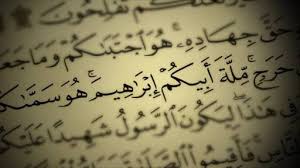 تُفْلِحُونَ
حَقَّ جِهَادِهِۦ ۚ هُوَ ٱجْتَبَىٰكُمْ وَمَا جَعَ
حَرَجٍ ۚ مِّلَّةَ أَبِيكُمْ إِبْرَٰهِيمَ ۚ هُوَ سَمَّىٰكُ
فِى هَٰذَا لِيَكُونَ ٱلرَّسُولُ شَهِيدًا عَلَيْكُ